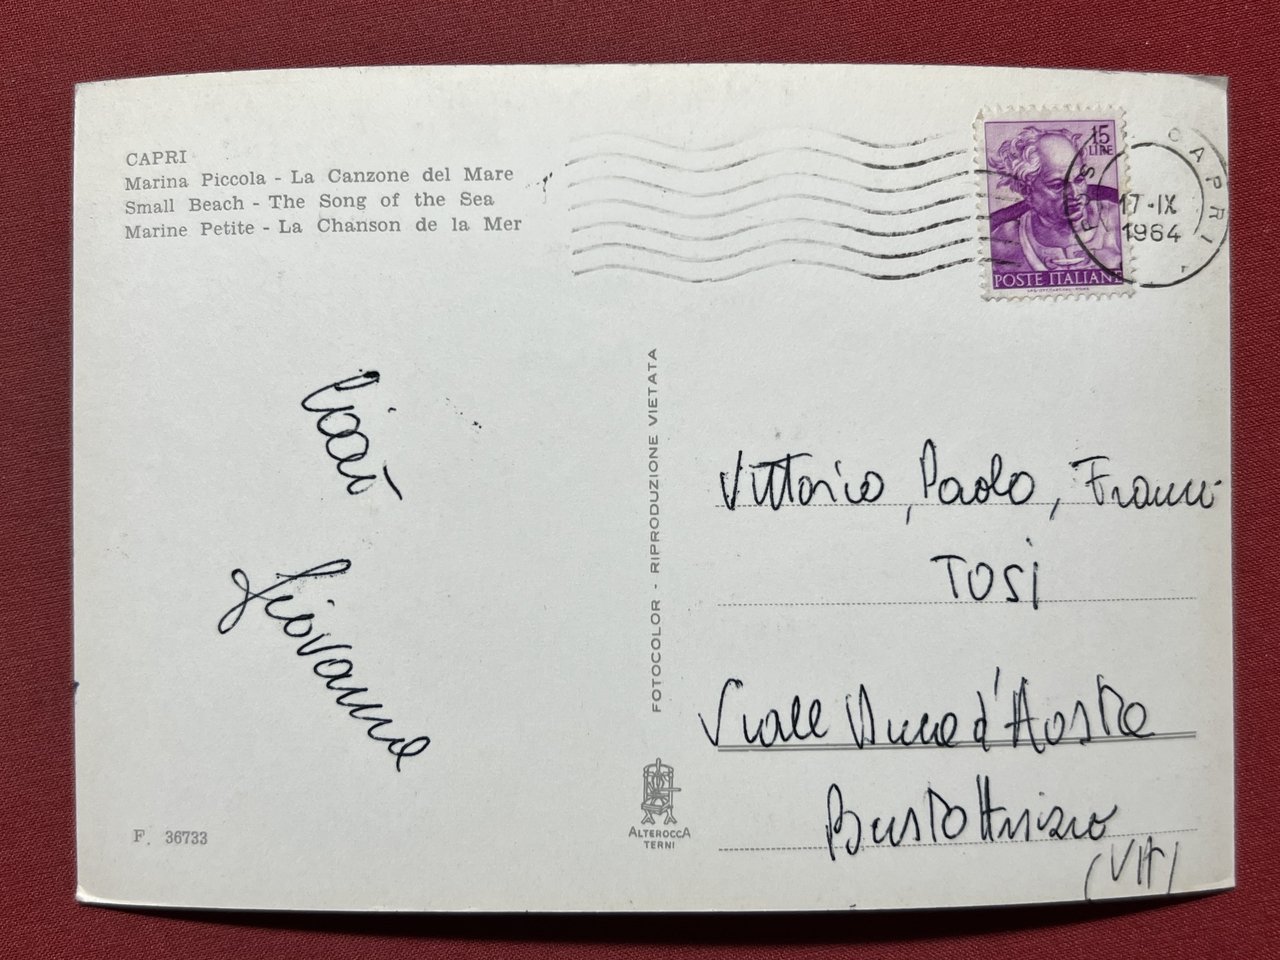 CAPRI
Marina Piccola - La Canzone del Mare
Small Beach - The Song of the Sea
Marine Petite - La Chanson de la Mer
15
LIRE
POSTE ITALIANE
CAPRI
17-IX
1964
Ciao
Giovanna
FOTOCOLOR - RIPRODUZIONE VIETATA
Vittorio, Paolo, Franco
TOSI
Viale Duca d'Aosta
Busto Arsizio
(VA)
ALTEROCCA
TERNI
F. 36733